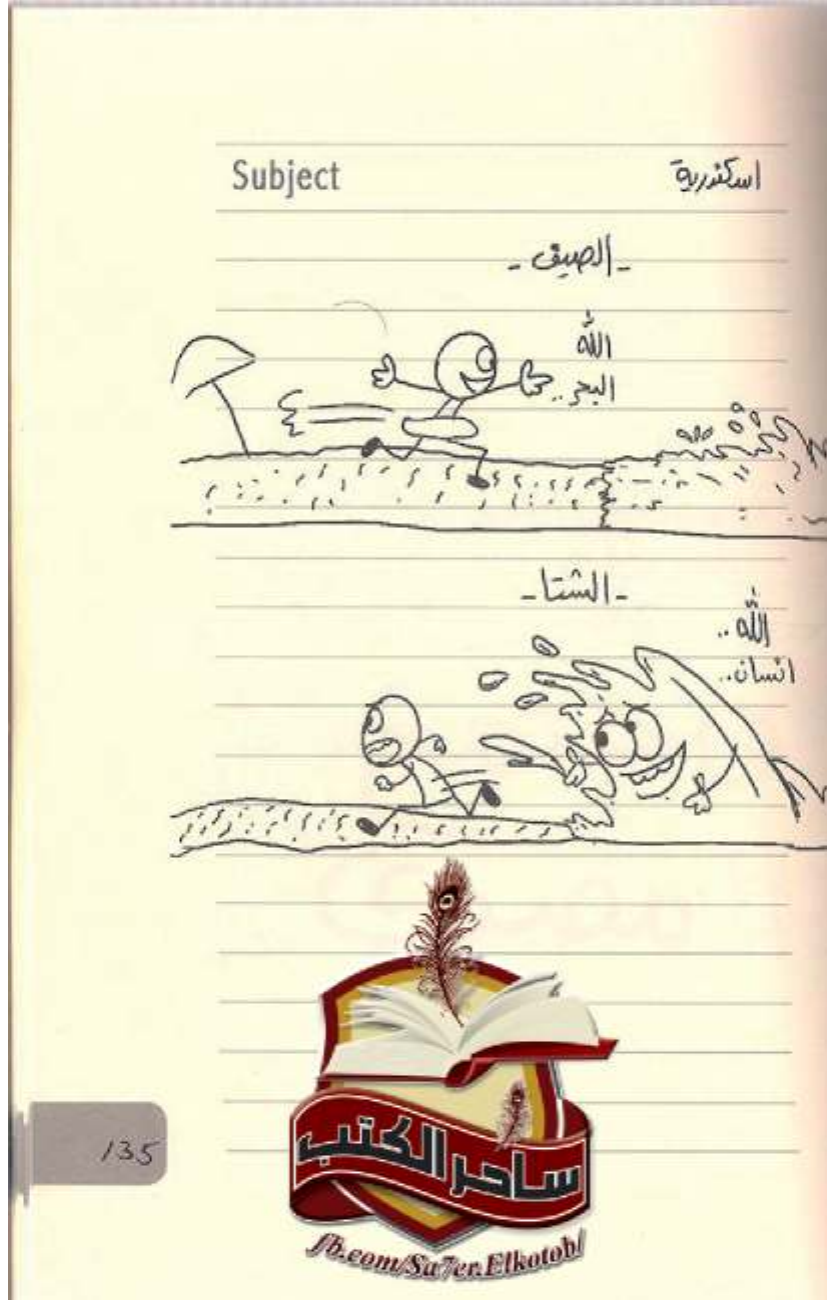 Subject
اسكندرية
- الصيف -
الله
البحر..
- الشتا -
الله..
انسان..
135
ساحر الكتب
fb.com/Sa7er.Elkotob/